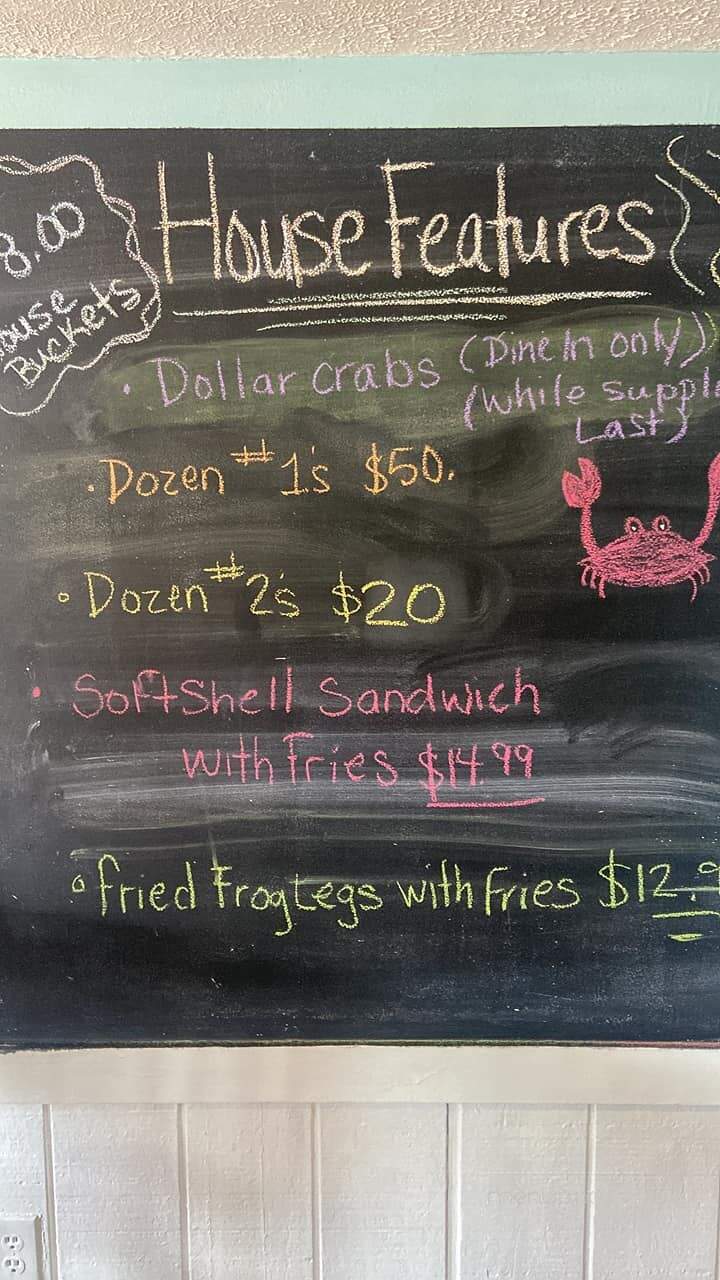 8.00
ouse
Buckets
House Features
• Dollar crabs (Dine In only)
(while suppli
Last)
• Dozen #1's $50.
• Dozen #2's $20
• Soft Shell Sandwich
with Fries $14.99
• Fried Frog Legs with fries $12.9